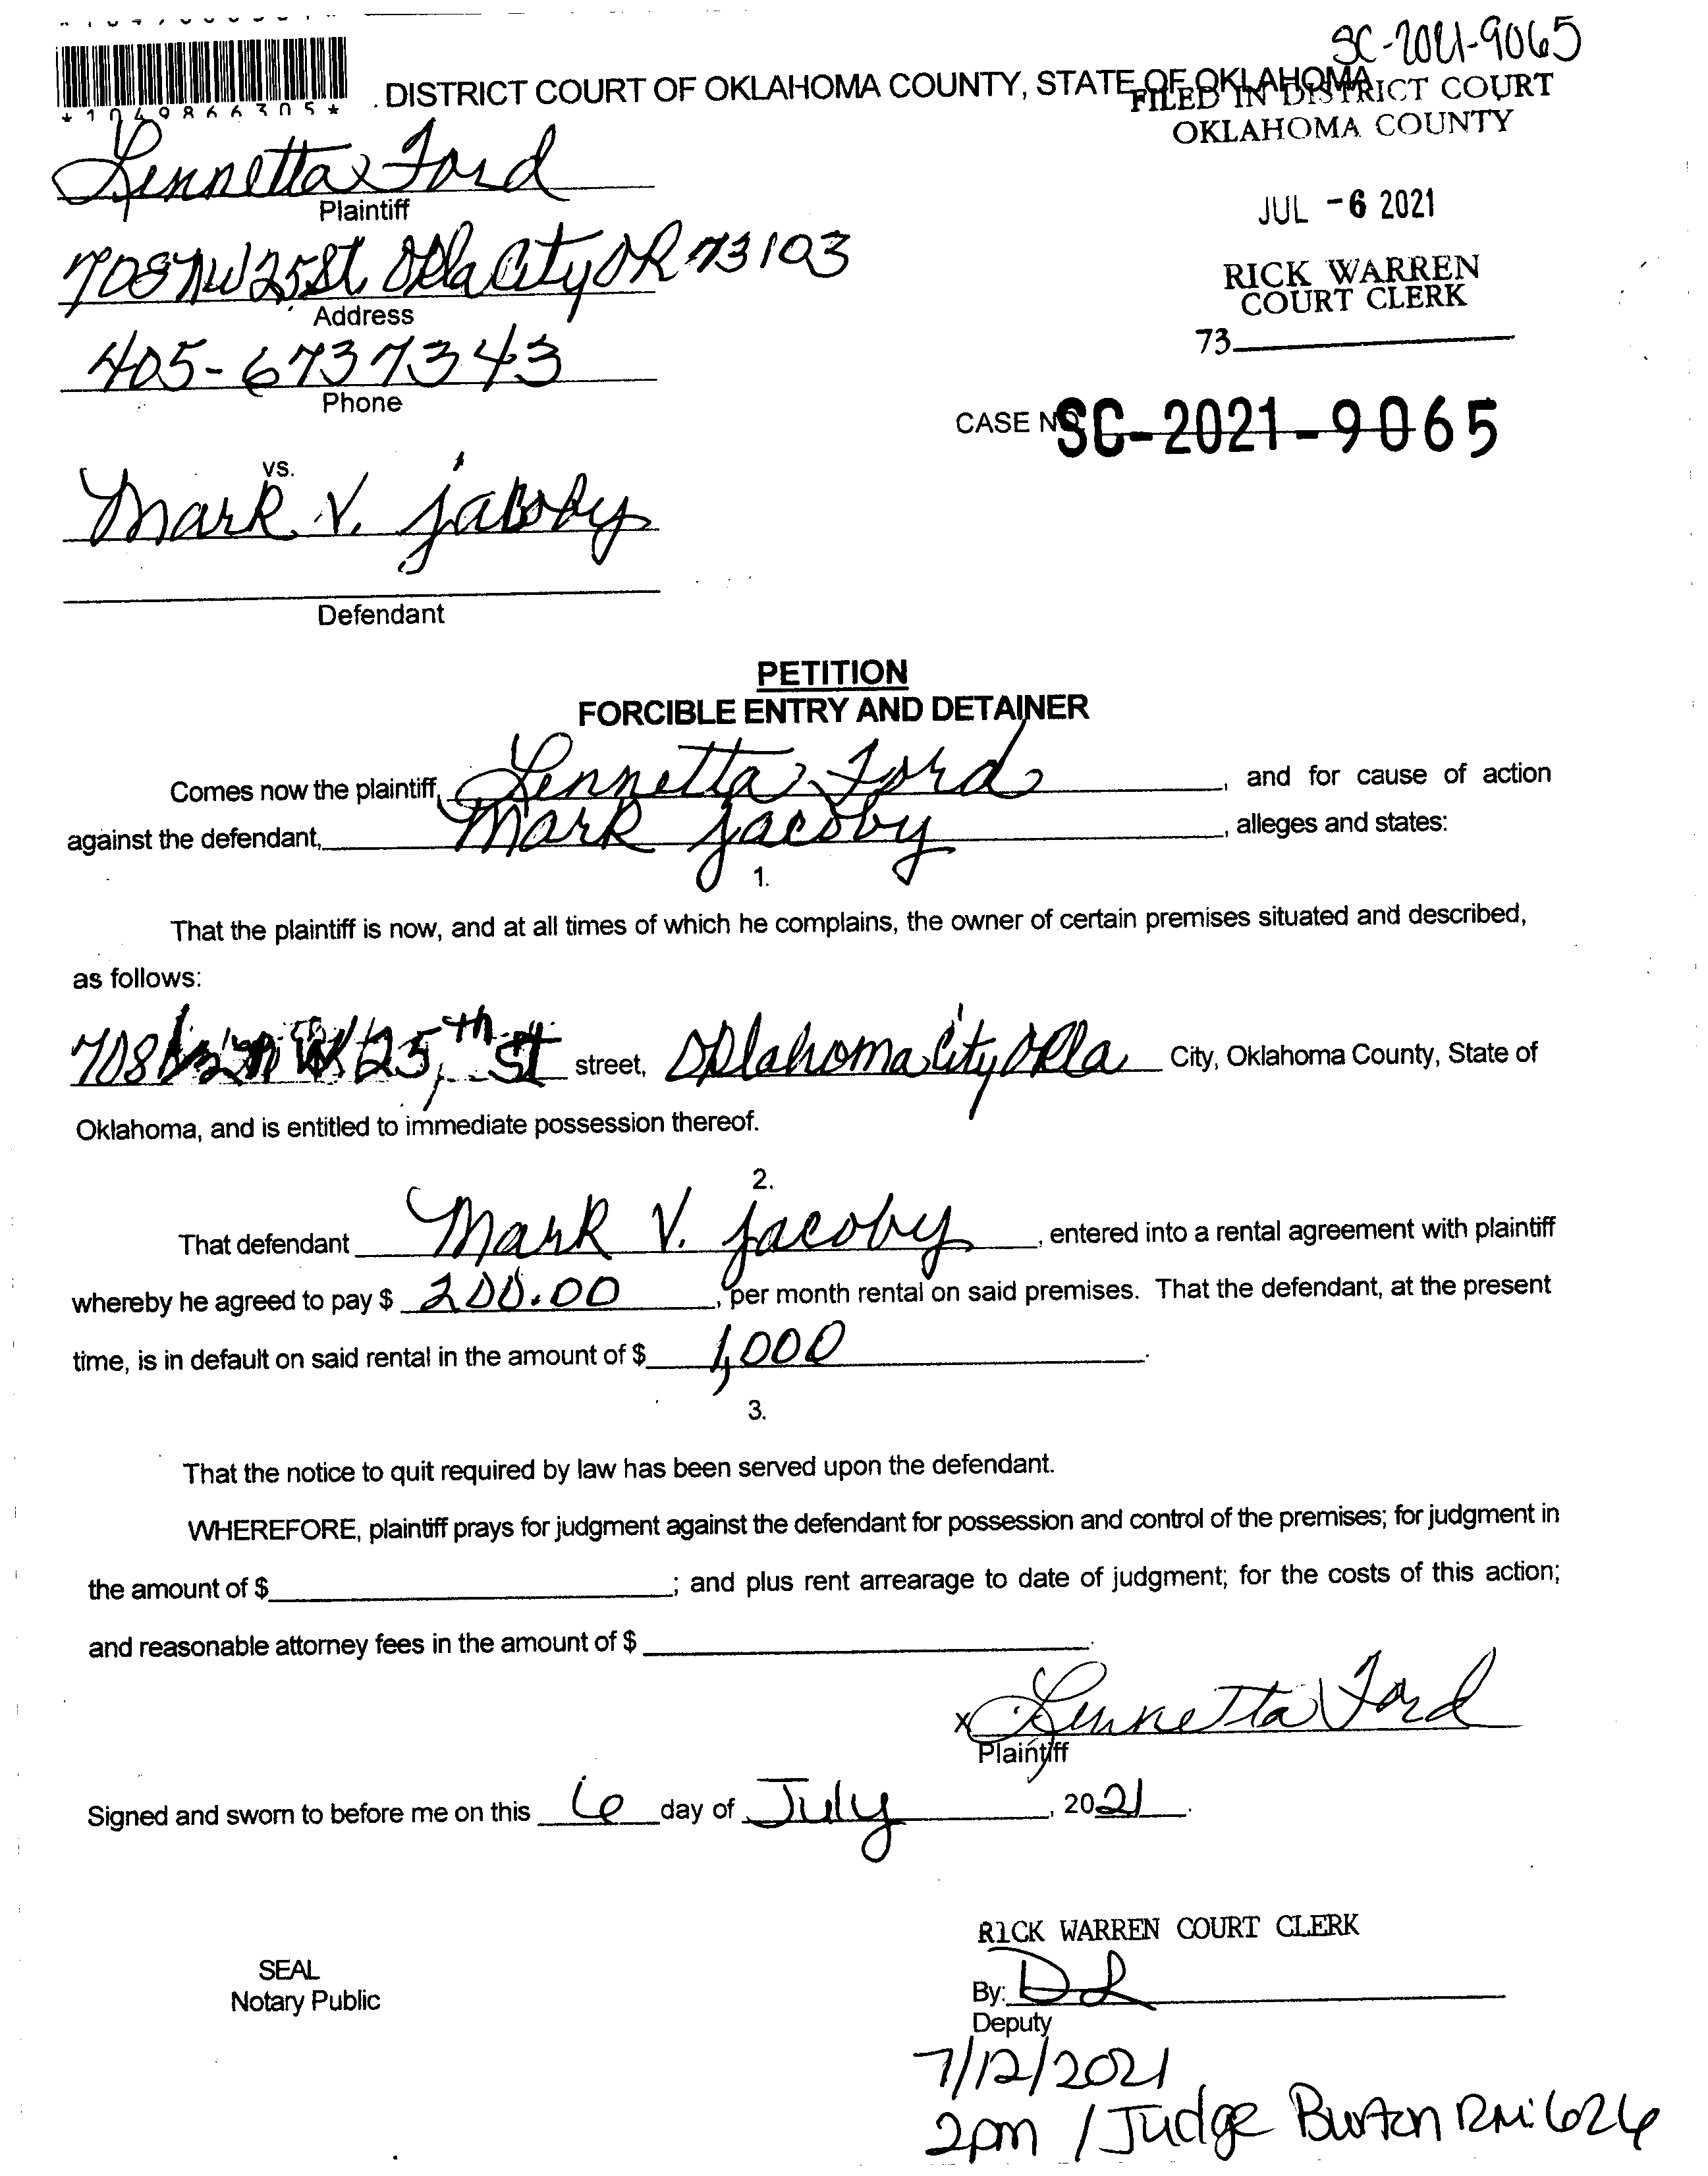 SC-2021-9065
*1049866305*
. DISTRICT COURT OF OKLAHOMA COUNTY, STATE OF OKLAHOMA
FILED IN DISTRICT COURT
OKLAHOMA COUNTY
Lennetta Ford
Plaintiff
JUL -6 2021
708 NW 25 St. Okla City OK 73103
Address
RICK WARREN
COURT CLERK
73
405-6737343
Phone
CASE NO. SC-2021-9065
vs.
Mark V. jacoby
Defendant
PETITION
FORCIBLE ENTRY AND DETAINER
Comes now the plaintiff, Lennetta Ford, and for cause of action
against the defendant, Mark jacoby, alleges and states:
1.
That the plaintiff is now, and at all times of which he complains, the owner of certain premises situated and described,
as follows:
708 1/2 N W 25th St street, Oklahoma City Okla City, Oklahoma County, State of
Oklahoma, and is entitled to immediate possession thereof.
2.
That defendant Mark V. jacoby, entered into a rental agreement with plaintiff
whereby he agreed to pay $ 200.00, per month rental on said premises. That the defendant, at the present
time, is in default on said rental in the amount of $ 1,000.
3.
That the notice to quit required by law has been served upon the defendant.
WHEREFORE, plaintiff prays for judgment against the defendant for possession and control of the premises; for judgment in
the amount of $; and plus rent arrearage to date of judgment; for the costs of this action;
and reasonable attorney fees in the amount of $.
x Lennetta Ford
Plaintiff
Signed and sworn to before me on this 6 day of July, 2021.
RICK WARREN COURT CLERK
SEAL
Notary Public
By: DL
Deputy
7/12/2021
2pm / Judge Burton RM: 626